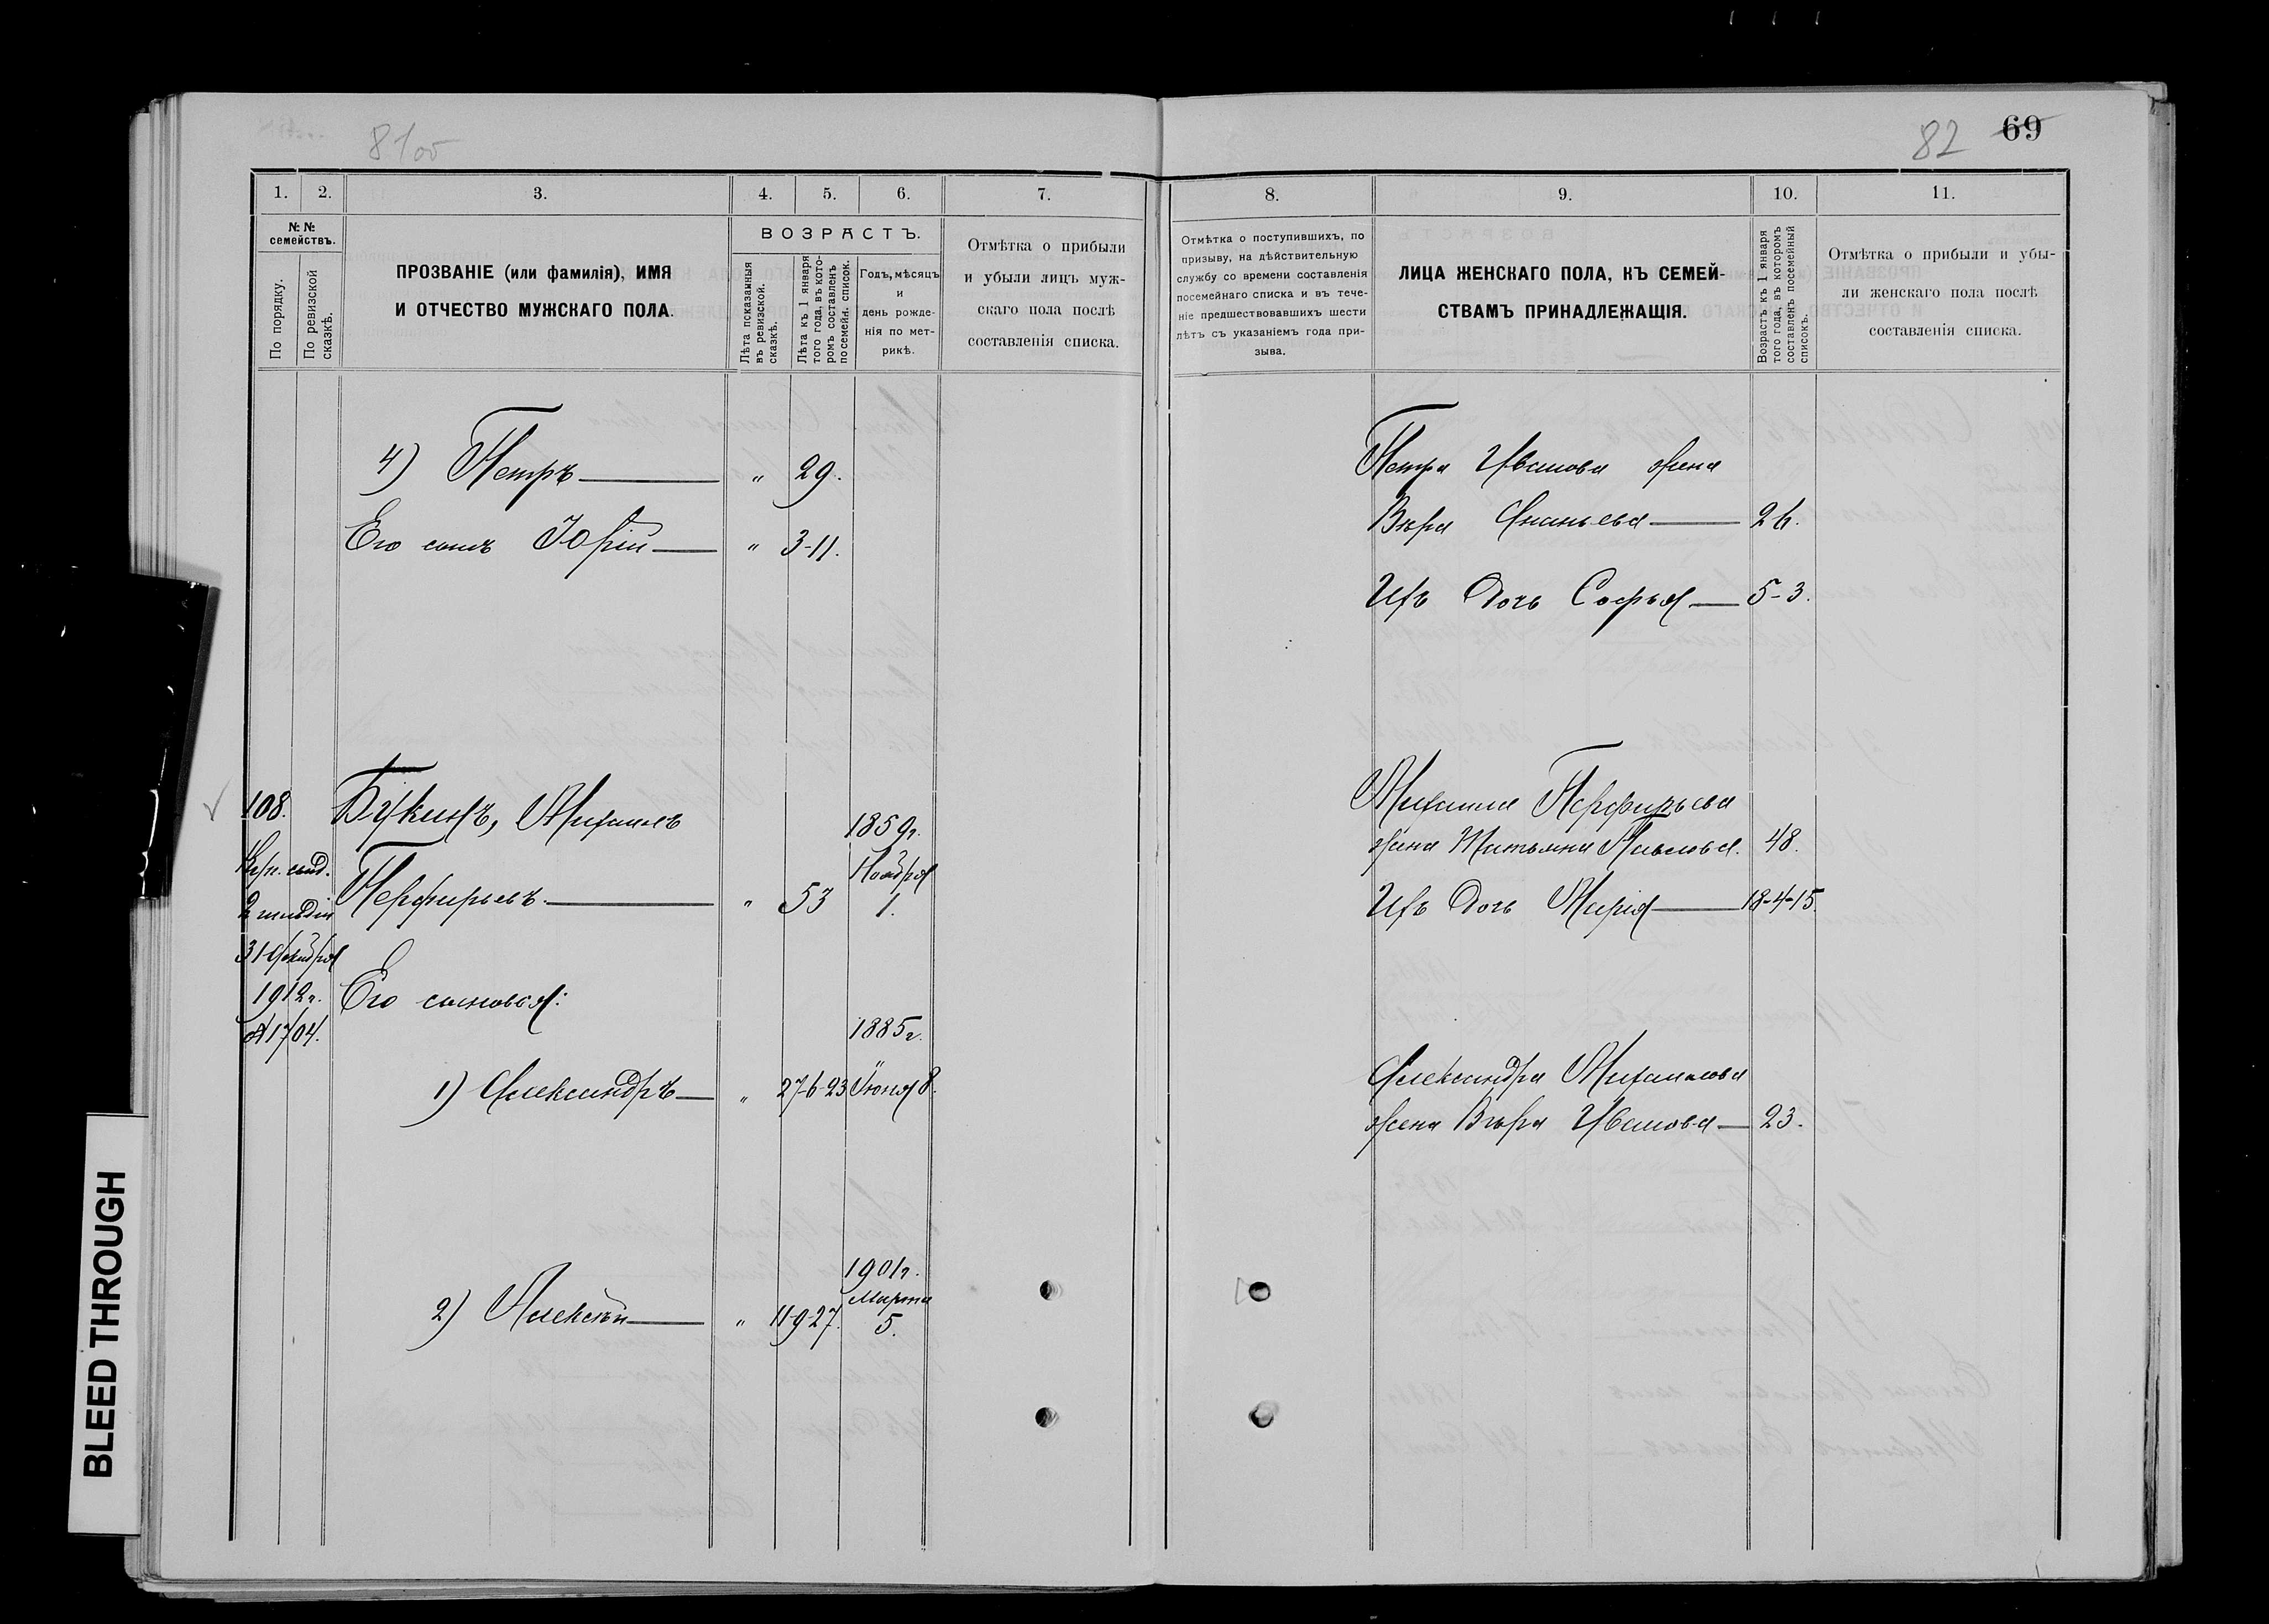 81об
82 69
1. 2. 3. 4. 5. 6. 7.
№ №
семействъ.
По порядку.
По ревизской
сказкѣ.
ПРОЗВАНІЕ (или фамилія), ИМЯ
И ОТЧЕСТВО МУЖСКАГО ПОЛА.
ВОЗРАСТЪ.
Лѣта показанныя
въ ревизской.
сказкѣ.
Лѣта къ 1 января
того года, въ кото-
ромъ составленъ
посемейн. список.
Годъ, мѣсяцъ
и
день рожде-
нія по мет-
рикѣ.
Отмѣтка о прибыли
и убыли лицъ муж-
скаго пола послѣ
составленія списка.
4) Петръ „ 29.
Его сынъ Юрій „ 3-11.
108. Букинъ, Михаилъ 1859г.
Куп. сынъ. Ноября
2 гильдіи Перфирьевъ. „ 53 1.
31 Октября
1912г. Его сыновья:
№1704. 1885г.
1) Александръ „ 27-6-23 Іюня 8.
1901г.
Марта
2) Алексѣй „ 11-9-27. 5.
8. 9. 10. 11.
Отмѣтка о поступившихъ, по
призыву, на дѣйствительную
службу со времени составленія
посемейнаго списка и въ тече-
ніе предшествовавшихъ шести
лѣтъ съ указаніемъ года при-
зыва.
ЛИЦА ЖЕНСКАГО ПОЛА, КЪ СЕМЕЙ-
СТВАМЪ ПРИНАДЛЕЖАЩІЯ.
Возрастъ къ 1 января
того года, въ которомъ
составленъ посемейный
списокъ.
Отмѣтка о прибыли и убы-
ли женскаго пола послѣ
составленія списка.
Петра Иванова жена
Вѣра Ананьева 26.
Ихъ дочь Софья 5-3.
Михаила Перфирьева
жена Татьяна Павлова. 48.
Ихъ дочь Марія 18-4-15.
Александра Михаилова
жена Вѣра Иванова 23.
BLEED THROUGH